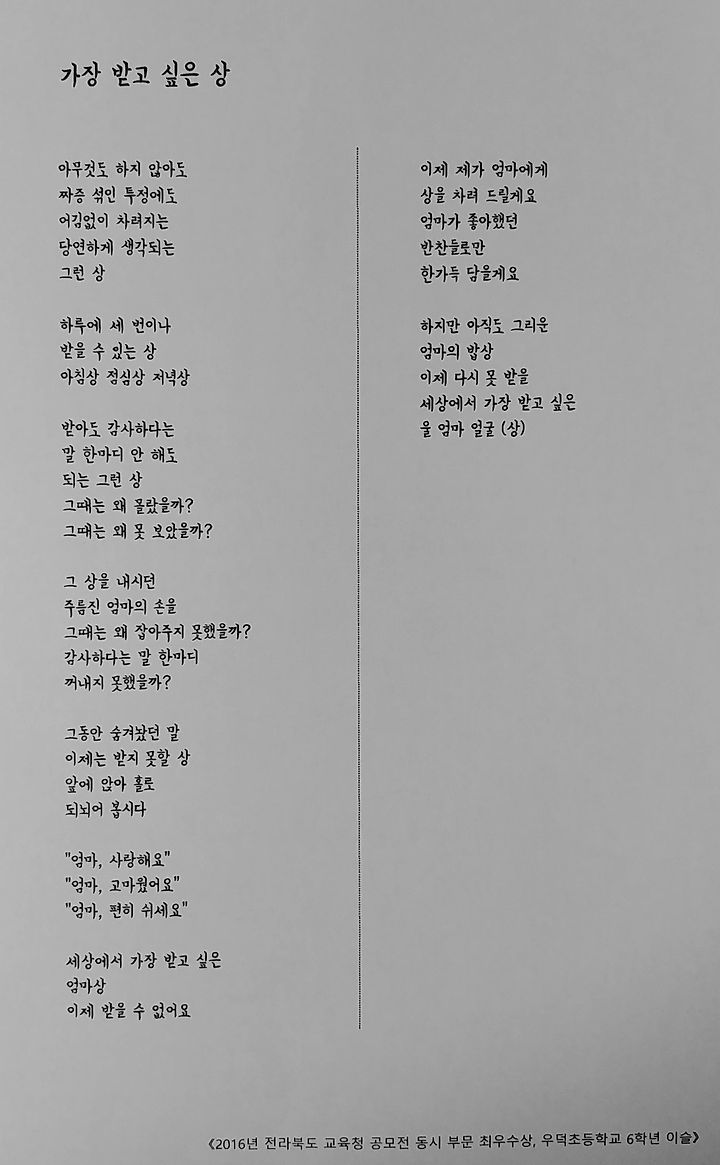 가장 받고 싶은 상
아무것도 하지 않아도
짜증 섞인 투정에도
어김없이 차려지는
당연하게 생각되는
그런 상
하루에 세 번이나
받을 수 있는 상
아침상 점심상 저녁상
받아도 감사하다는
말 한마디 안 해도
되는 그런 상
그때는 왜 몰랐을까?
그때는 왜 못 보았을까?
그 상을 내시던
주름진 엄마의 손을
그때는 왜 잡아주지 못했을까?
감사하다는 말 한마디
꺼내지 못했을까?
그동안 숨겨놨던 말
이제는 받지 못할 상
앞에 앉아 홀로
되뇌어 봅시다
"엄마, 사랑해요"
"엄마, 고마웠어요"
"엄마, 편히 쉬세요"
세상에서 가장 받고 싶은
엄마상
이제 받을 수 없어요
이제 제가 엄마에게
상을 차려 드릴게요
엄마가 좋아했던
반찬들로만
한가득 담을게요
하지만 아직도 그리운
엄마의 밥상
이제 다시 못 받을
세상에서 가장 받고 싶은
울 엄마 얼굴 (상)
《2016년 전라북도 교육청 공모전 동시 부문 최우수상, 우덕초등학교 6학년 이슬》